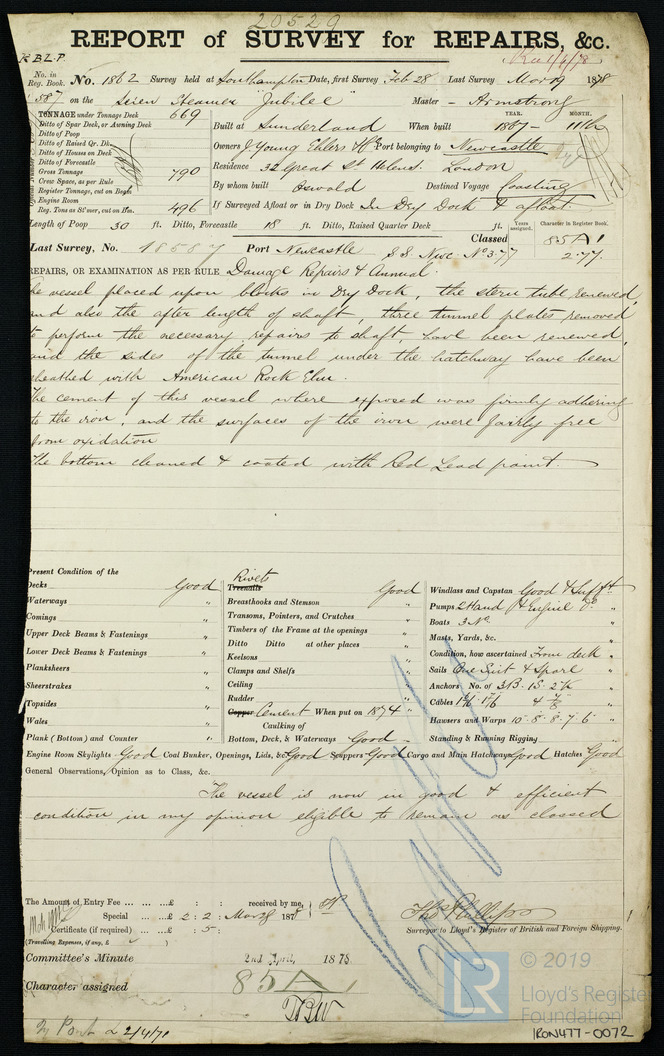 20529
REPORT of SURVEY for REPAIRS, &c.
No. in Reg. Book. No. 1862 Survey held at Southampton Date, first Survey Feb 28 Last Survey Mar 19 1878
587 on the Screw Steamer "Jubilee" Master - Armstrong
TONNAGE under Tonnage Deck 669
Ditto of Spar Deck, or Awning Deck
Ditto of Poop
Ditto of Raised Qr. Dk.
Ditto of House on Deck
Ditto of Forecastle
Gross Tonnage 790
Crew Space, as per Rule
Register Tonnage, cut on Beam
Engine Room
Reg. Tons as St'mer, cut on Bm. 496
YEAR. MONTH.
Built at Sunderland When built 1867 - 11th
Owners J. Young Ehlers & Co Port belonging to Newcastle
Residence 32 Great St Helens. London
By whom built Oswald Destined Voyage Coasting
If Surveyed Afloat or in Dry Dock In Dry Dock & afloat
Length of Poop 30 ft. Ditto, Forecastle 18 ft. Ditto, Raised Quarter Deck ft.
Years assigned. Character in Register Book.
Classed 85 A 1
2.77.
Last Survey, No. 18587 Port Newcastle S S Nwc No 3-77
REPAIRS, OR EXAMINATION AS PER RULE Damage Repairs & Annual.
he vessel placed upon blocks in Dry Dock, the stern tube renewed,
and also the after length of shaft, three tunnel plates removed
to perform the necessary repairs to shaft, have been renewed,
and the sides of the tunnel under the hatchway have been
sheathed with American Rock Elm.
The cement of this vessel where exposed was firmly adhering
to the iron, and the surfaces of the iron were fairly free
from oxidation
The bottom cleaned & coated with Red Lead paint.
Present Condition of the
Decks Good
Waterways "
Comings "
Upper Deck Beams & Fastenings "
Lower Deck Beams & Fastenings "
Planksheers "
Sheerstrakes "
Topsides "
Wales "
Plank (Bottom) and Counter "
Rivets
Treenails Good
Breasthooks and Stemson "
Transoms, Pointers, and Crutches "
Timbers of the Frame at the openings "
Ditto Ditto at other places "
Keelsons "
Clamps and Shelfs "
Ceiling "
Rudder "
Copper Cement When put on 1874 "
Caulking of
Bottom, Deck, & Waterways Good
Windlass and Capstan Good & Suff't
Pumps 2 Hand & Engine Do "
Boats 3 No "
Masts, Yards, &c. "
Condition, how ascertained From deck "
Sails One Suit & Spare "
Anchors No. of 3B. 1S. 2K "
Cables "
Hawsers and Warps 10. 8. 8. 7. 6 "
Standing & Running Rigging "
Engine Room Skylights Good Coal Bunker, Openings, Lids, &c. Good Scuppers Good Cargo and Main Hatchways Good Hatches Good
General Observations, Opinion as to Class, &c.
The vessel is now in good & efficient
condition in my opinion eligible to remain as classed
The Amount of Entry Fee ... ... ...£ : : received by me,
Special ... £ 2 : 2 : Mar 28 1878
Certificate (if required) ... £ : 5 :
(Travelling Expenses, if any, £ )
Thos Phillips
Surveyor to Lloyd's Register of British and Foreign Shipping.
Committee's Minute 2nd April, 1878
Character assigned 85 A 1
LR
© 2019
Lloyd's Register
Foundation
IRON477-0072